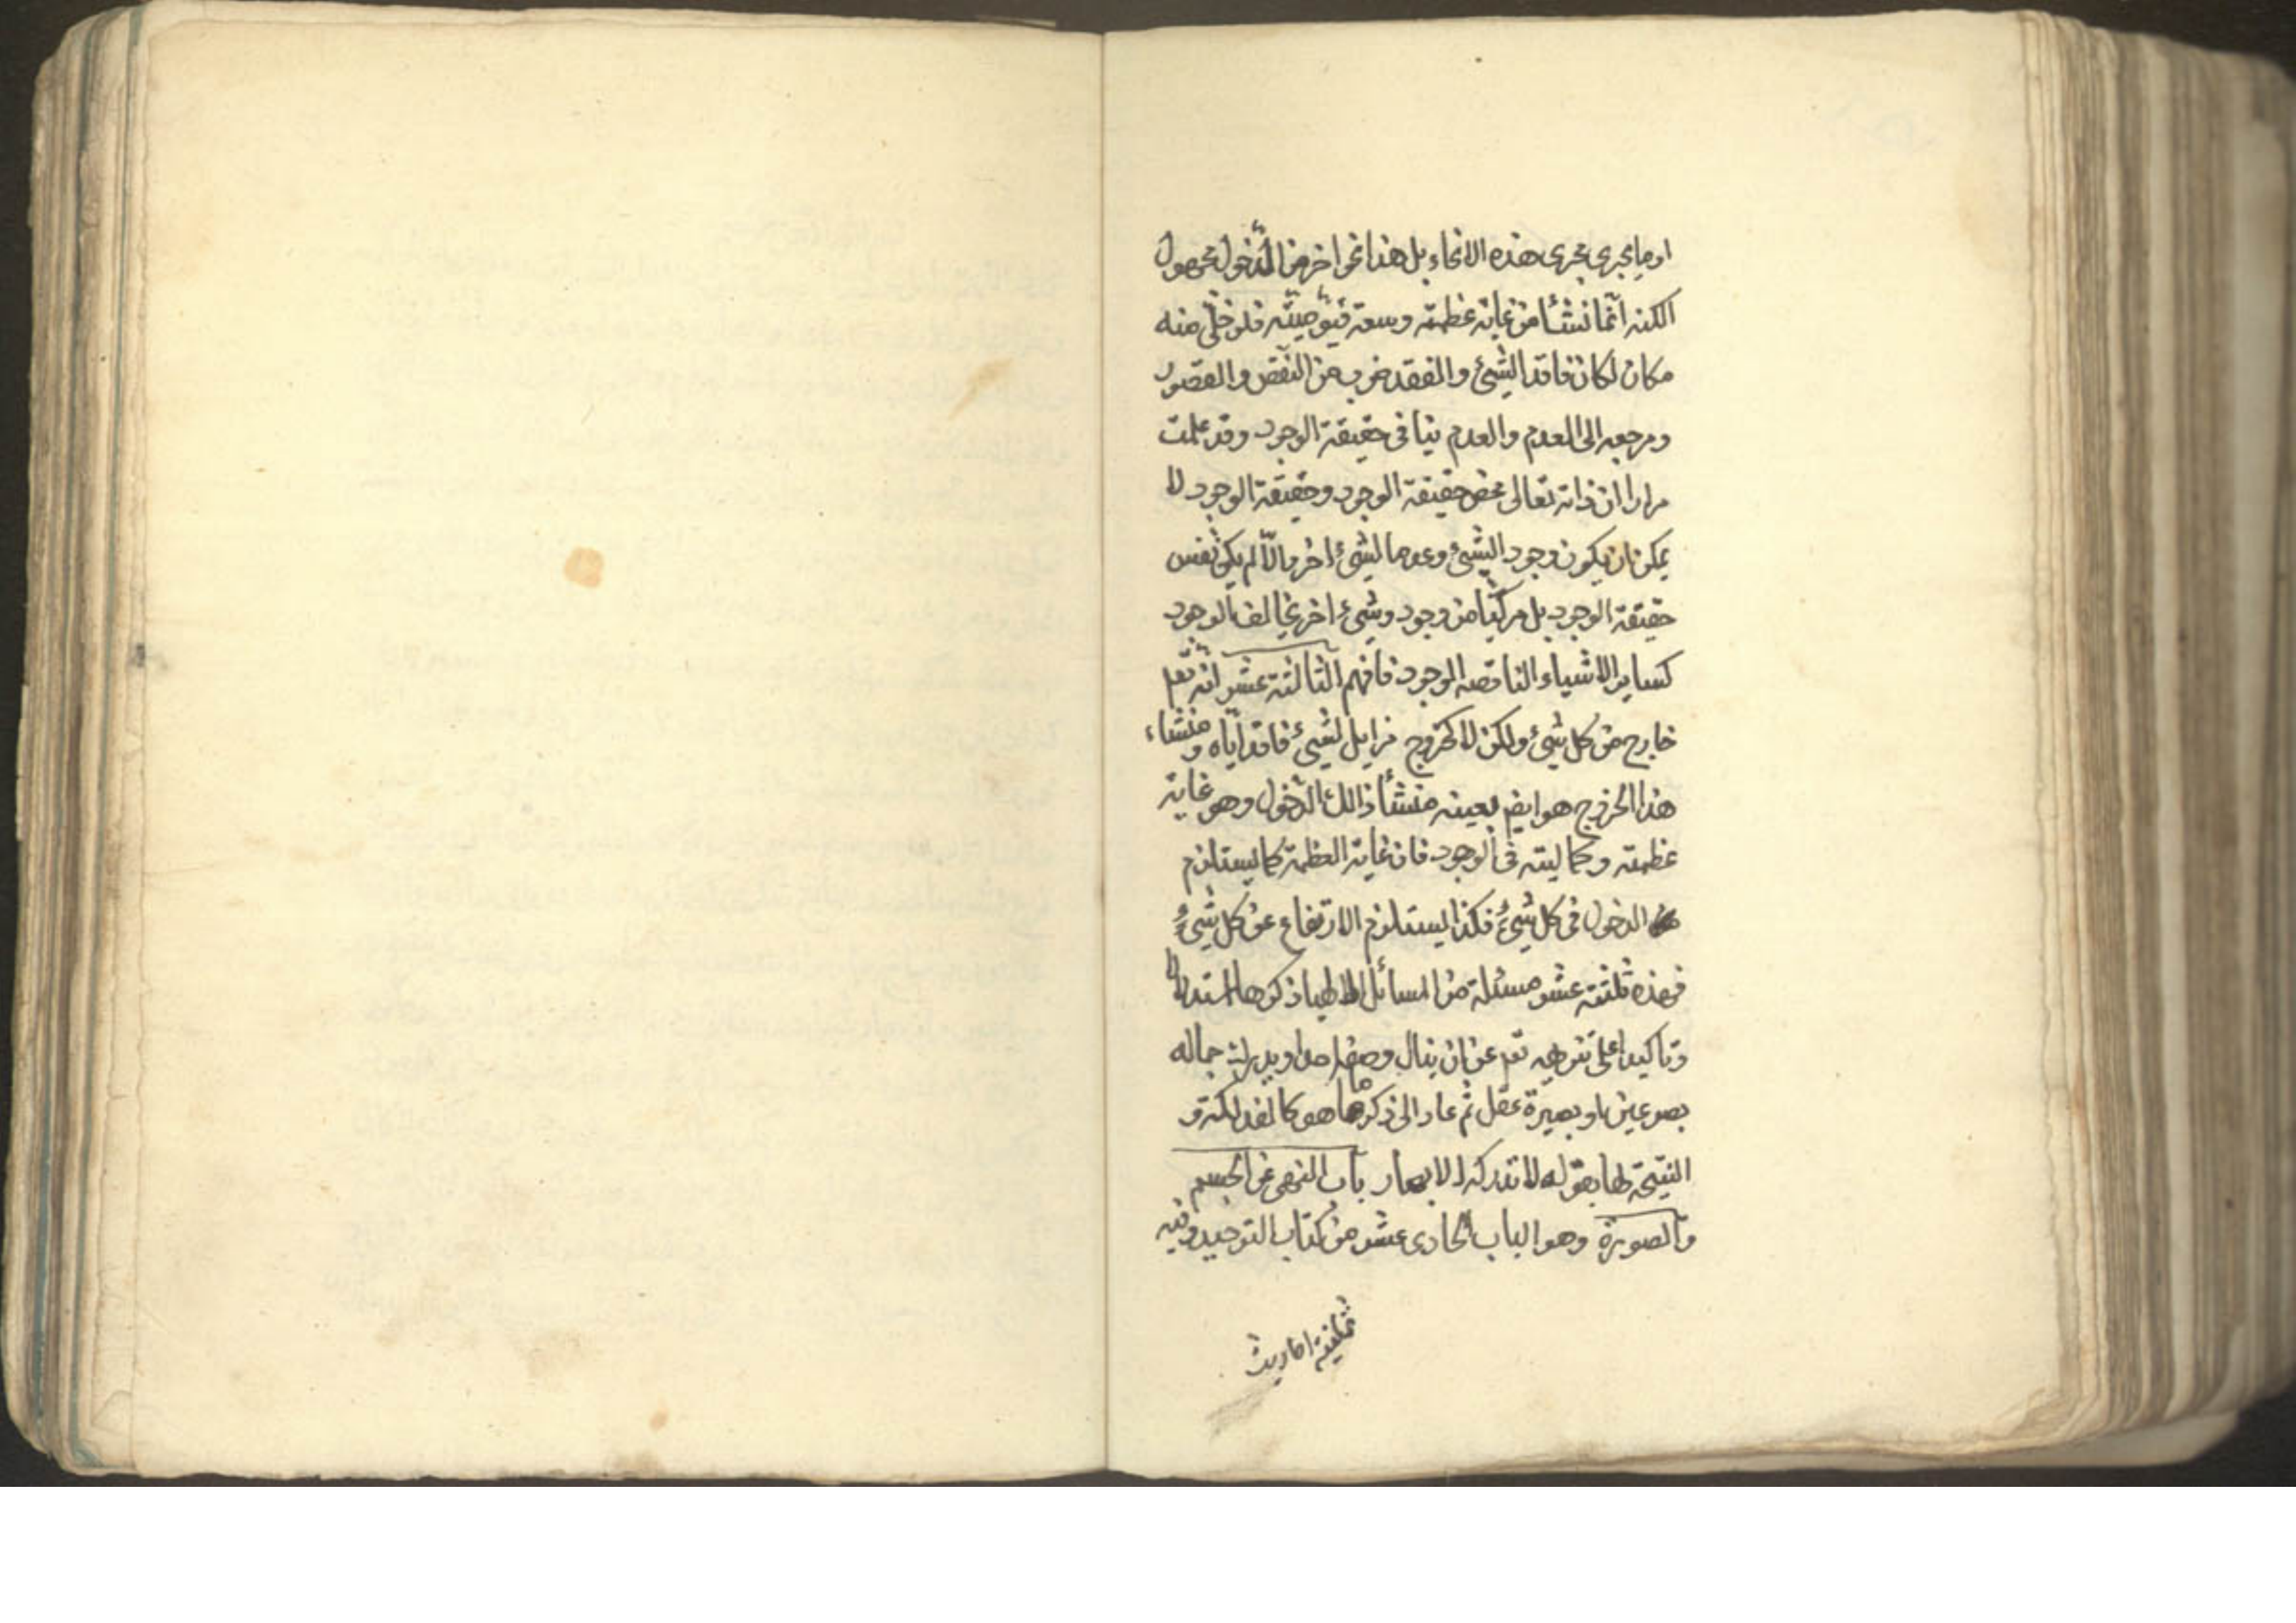 او ما يجرى مجرى هذه الانحاء بل هذا نحو اخر من الدّخول مجهول
الكنه انّما نشأ من غاية عظمته وسعة قيّوميّته فلو خلّى منه
مكان لكان فاقد الشئ والفقد ضرب من النّقص والقصور
ومرجعه الى العدم والعدم ينافى حقيقة الوجود وقد علمت
مرارا ان ذاته تعالى محض حقيقة الوجود وحقيقة الوجود لا
يمكن ان يكون وجود الشئ وعدما لشئ اخر والّا لم يكن نفس
حقيقة الوجود بل مركّبا من وجود وشئ اخر يخالف الوجود
كساير الاشياء الناقصه الوجود فافهم الثالثة عشر انّه تعم
خارج من كل شئ ولكن لا كخروج مزايل لشئ فاقد ايّاه ومنشاء
هذا الخروج هو ايض بعينه منشأ ذالك الدّخول وهو غاية
عظمته وكماليته فى الوجود فان غاية العظمة كما يستلزم
الدخول فى كل شئ فكذا يستلزم الارتفاع عن كل شئ
فهذه ثلثة عشر مسئلة من المسائل ذكرها استدلالا
وتاكيدا على تنزهه تعم عن ان ينال وصفه احد او يدرك جماله
بصر عين او بصيرة عقل ثم عاد الى ذكر ما هو كالفذلكة و
النتيجة لها بقوله لا تدركه الابصار باب النهى عن الجسم
والصورة وهو الباب الحادى عشر من كتاب التوحيد وفيه
ثمانية احاديث